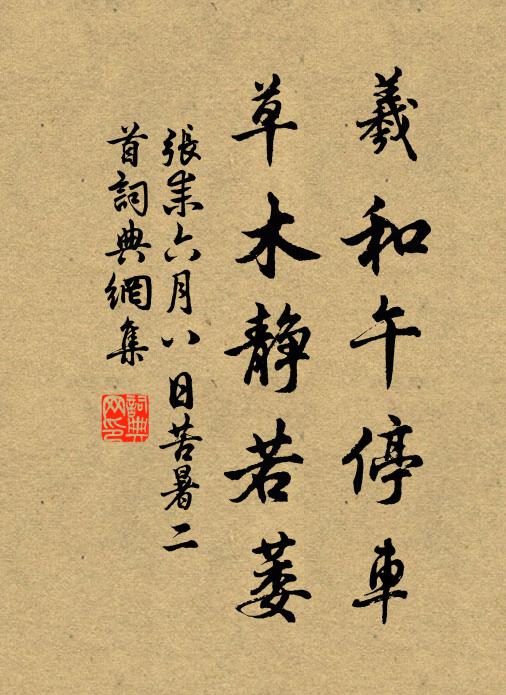 羲和午停車
草木靜若萎
張耒六月八日苦暑二
首詞典網集
詞典網印